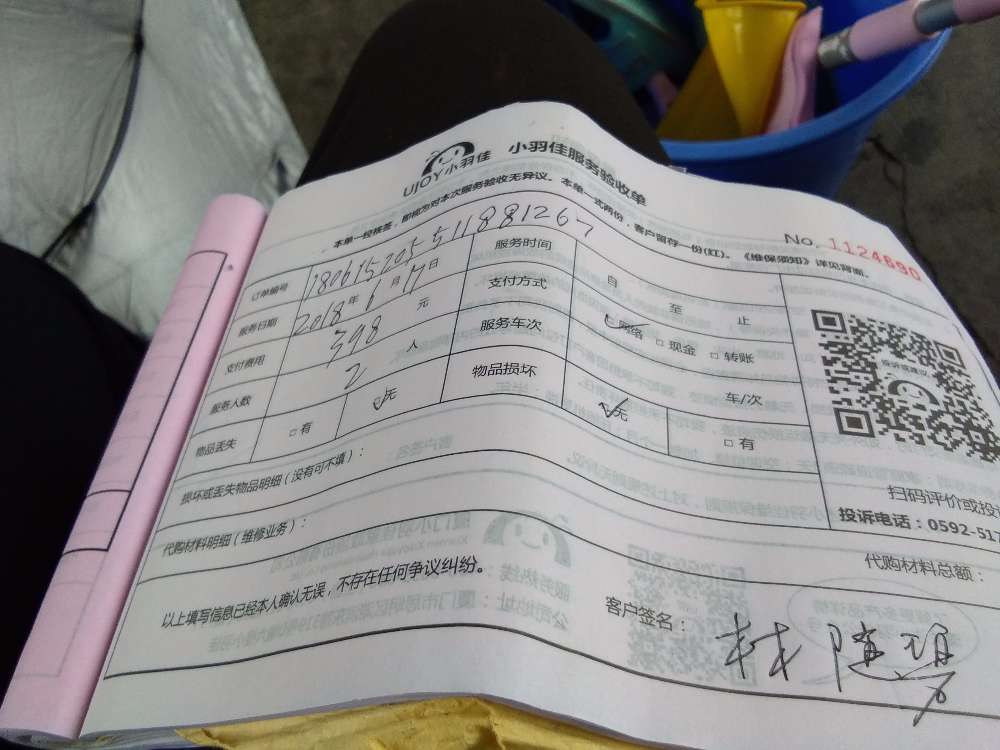 UJOY小羽佳 小羽佳服务验收单
本单一经核签，即视为对本次服务验收无异议。本单一式两份，客户留存一份(红)。《维保须知》详见背面。
No. 1124690
订单编号 180615205511881267
服务时间 自 至 止
服务日期 2018年6月17日
支付方式 网络 □现金 □转账
支付费用 398 元
服务车次 车/次
服务人数 2 人
物品损坏 无 □有
物品丢失 □有 无
损坏或丢失物品明细（没有可不填）：
扫码评价或投
投诉电话：0592-517
代购材料明细（维修业务）：
代购材料总额：
以上填写信息已经本人确认无误，不存在任何争议纠纷。
客户签名：